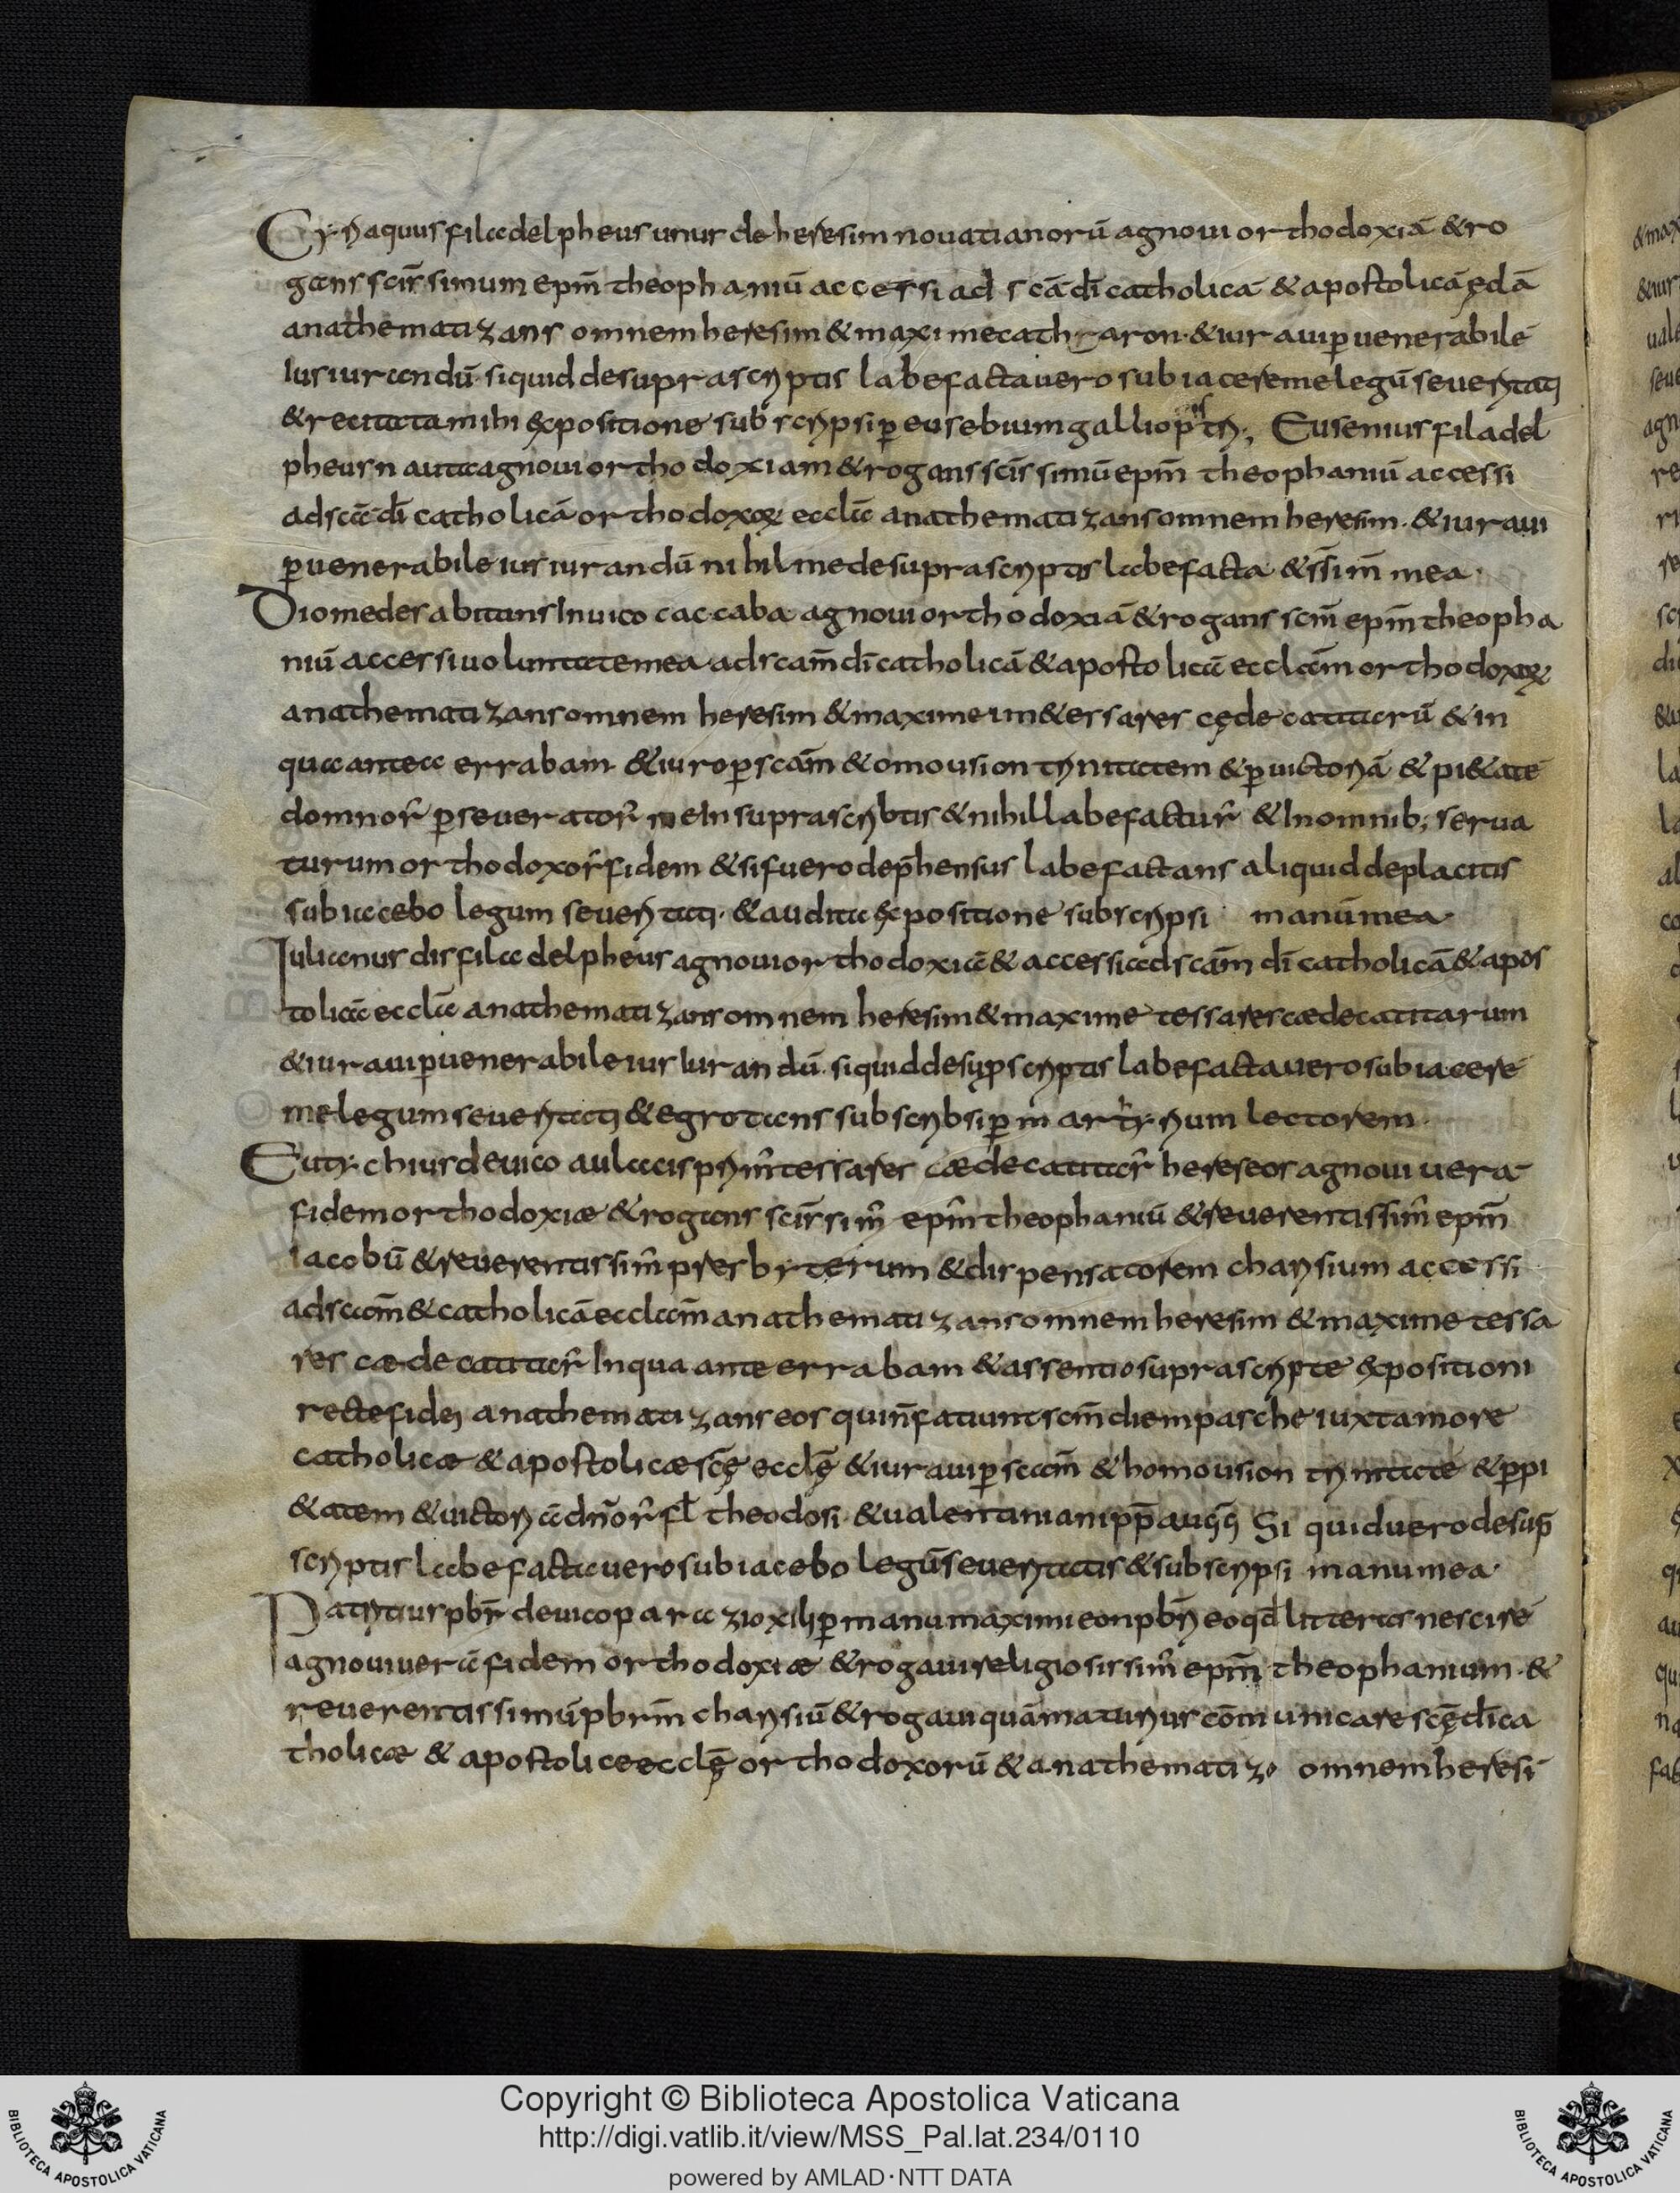 Cyriaquus filadelpheus unus de heresim nouatianorū agnoui orthodoxiā & ro
gans scis̄simum epm̄ theophaniū accersi ad scādī catholicā & apostolicā ędā
anathematizans omnem heresim & maxime catharon · & iuraui p̱ uenerabilē
iusiurandū siquid de suprascriptis labefactauero subiacere me legū seueritati
& recitata mihi expositione subscripsi p̱ eusebium gallio p̄tri; Eusenius filadel
pheus nauta agnoui orthodoxiam & rogans scis̄simū epm̄ theophaniū accessi
ad scāē dī catholicā orthodoxoꝝ eccla anathematizans omnem heresim · & iuraui
p̱ uenerabile iusiurandū nihil me de suprascriptis labefacta & s̄sim̄ mea ·
Diomedes abitans In uico caccaba agnoui orthodoxiā & rogans scm̄ epm̄ theopha
niū accersi uoluntate mea ad scam̄ dī catholicā & apostolicā ecclam̄ orthodoxoꝝ
anathematizans omnem heresim & maxime im & essares cędecatitarū & in
qua antea errabam · & iuro p̱ scam̄ & omousion trinitatem & p̱ uictoriā & pi&atē
domnor̄ p̱seuerator̄ me In suprascribtis & nihil labefactur̄ & In omnib; serua
turum orthodoxor̄ fidem & si fuero dep̄hensus labefactans aliquid de placitis
subiacebo legum seueritati · & audita expositionē subscripsi manū mea ·
Iulianus dis filadelpheus agnoui orthodoxiā & accessi ad scam̄ dī catholicā & apos
tolicā eccla anathematizans omnem heresim & maxime tessarescædecatitarum
& iuraui p̱ uenerabile iusIurandū · siquid de sup̱scriptis labefactauero subiacere
me legum seueritati & egrotans subscribsi p̱ martyrium lectorem ·
Eutychius de uico aulacis prim̄ tessares cædecatitar̄ hereseos agnoui uerā
fidem orthodoxiæ & rogans scis̄sim̄ epm̄ theophaniū & reuerentissim̄ epm̄
Iacobū & reuerentissim̄ presbyterum & dispensatorem charisium accessi
ad scam̄ & catholicā ecclam̄ anathematizans omnem heresim & maxime tessa
res cædecatitar̄ In qua ante errabam & assentio suprascripte expositioni
recte fidei anathematizans eos qui n̄ fatiunt scm̄ diem pasche iuxta morē
catholicæ & apostolicæ scę̄ ecclę̄ & iuraui p̱ scam̄ & homousion trinitatē & p̱ pi
&atem & uictoriā dn̄or̄ fl theodosi & ualentiniani pp̄ augḡ Si quid uero de sup̄
scriptis labefactauero subiacebo legū seueritatis & subscripsi manu mea ·
Patricius pbr̄ de uico paradioxili p̱ manu maximi conpbri eo qd̄ litteras nescirē
agnoui uerā fidem orthodoxiæ & rogaui religiosissim̄ epm̄ theophanium · &
reuerentissimū pbrm̄ charisiū & rogaui quā maturius cōmunicare scę̄ dī ca
tholicæ & apostolice ecclę̄ orthodoxorū & anathematizo omnem heresī
Copyright © Biblioteca Apostolica Vaticana
http://digi.vatlib.it/view/MSS_Pal.lat.234/0110
powered by AMLAD·NTT DATA
BIBLIOTECA APOSTOLICA VATICANA
BIBLIOTECA APOSTOLICA VATICANA